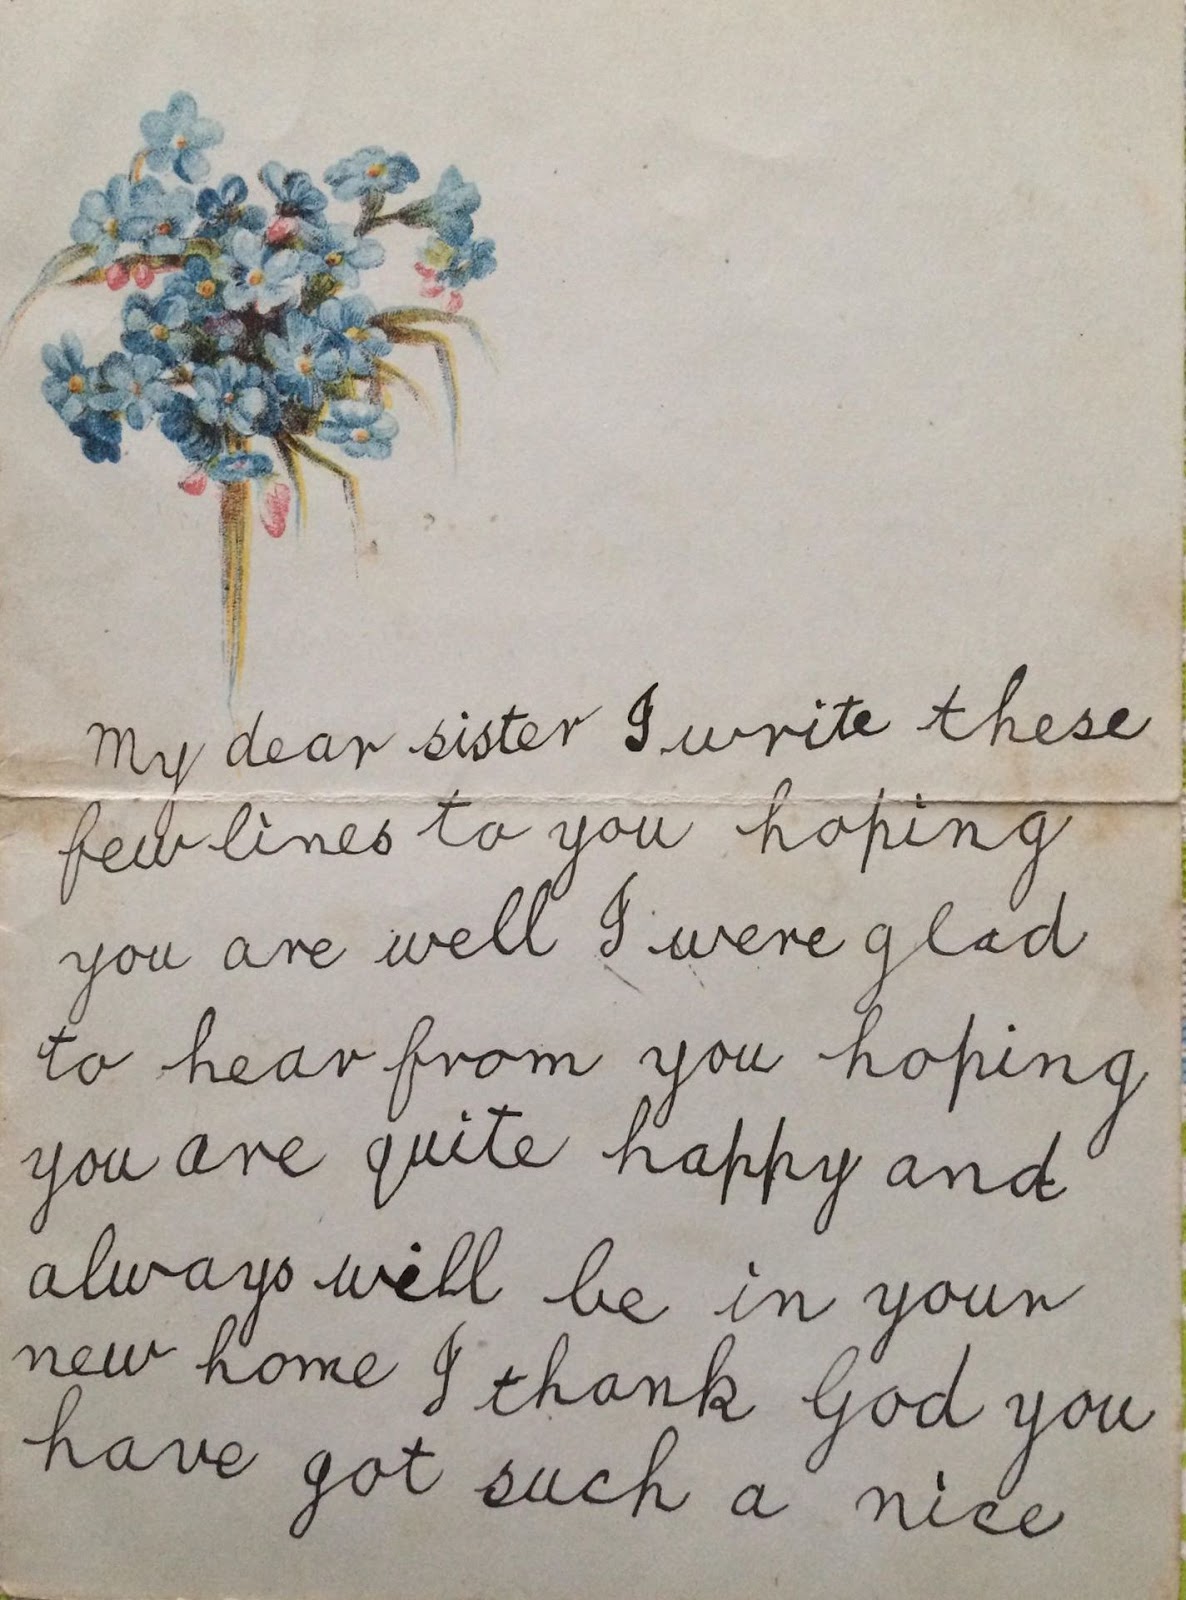 My dear sister I write these
few lines to you hoping
you are well I were glad
to hear from you hoping
you are quite happy and
always will be in your
new home I thank God you
have got such a nice